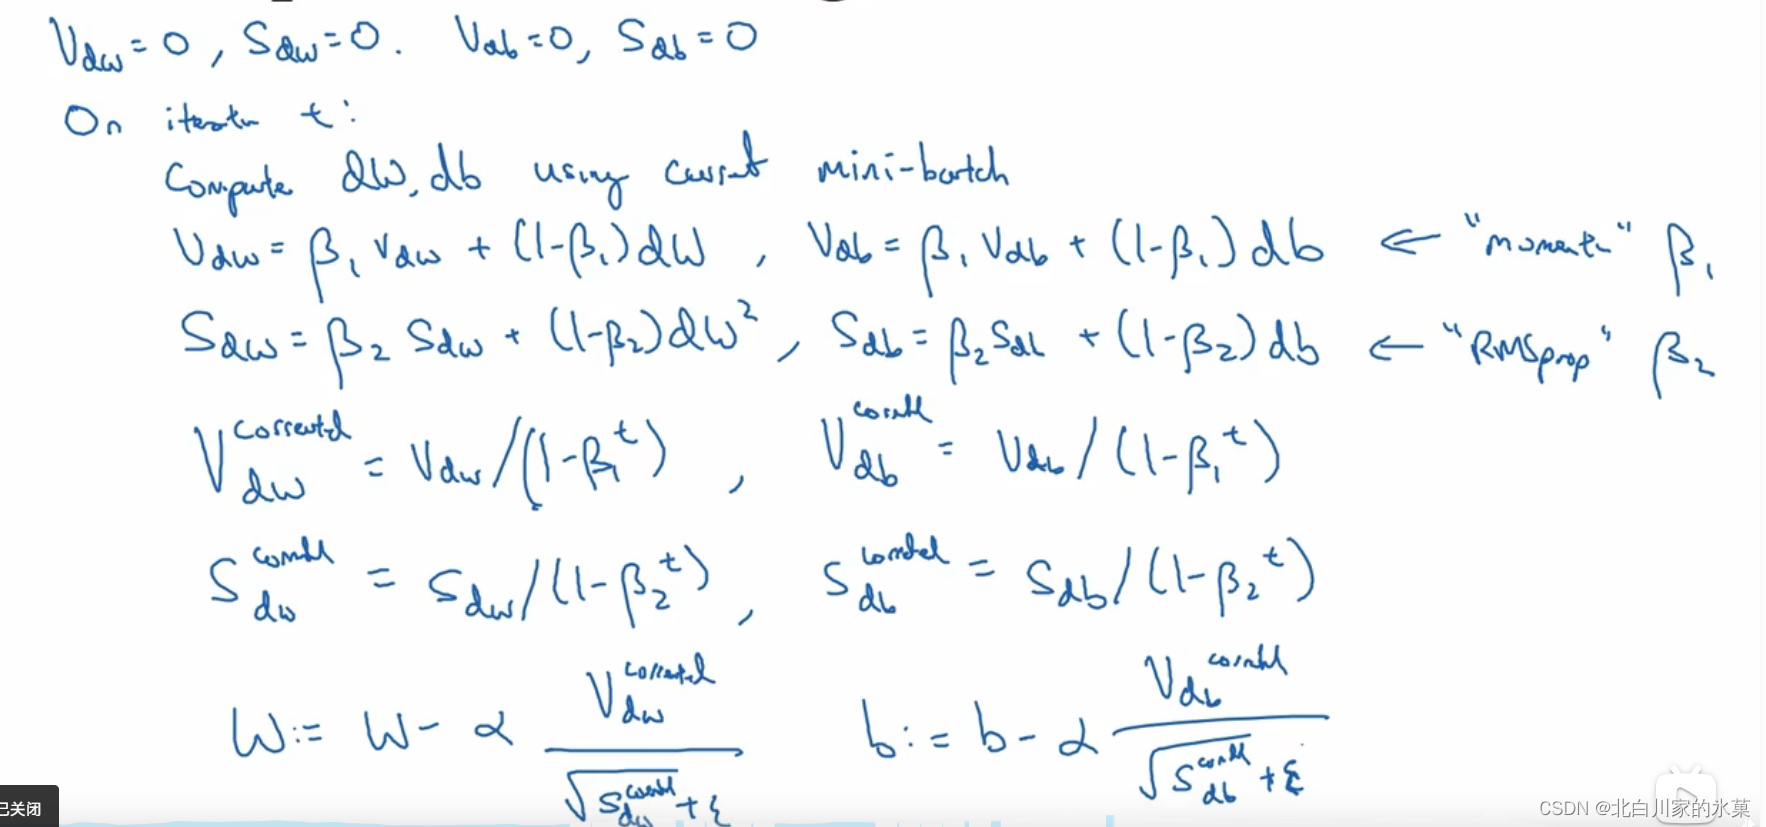 V_dw = 0, S_dw = 0. V_db = 0, S_db = 0
On iteratn t:
Compute dW, db using current mini-batch
V_dw = β₁ V_dw + (1-β₁) dW , V_db = β₁ V_db + (1-β₁) db ← "moment" β₁
S_dw = β₂ S_dw + (1-β₂) dW² , S_db = β₂ S_db + (1-β₂) db ← "RMSprop" β₂
V_dw^corrected = V_dw / (1-β₁^t) , V_db^corrected = V_db / (1-β₁^t)
S_dw^corrected = S_dw / (1-β₂^t) , S_db^corrected = S_db / (1-β₂^t)
W := W - α V_dw^corrected / (√S_dw^corrected + ε) b := b - α V_db^corrected / (√S_db^corrected + ε)
已关闭
CSDN @北白川家的氷菓